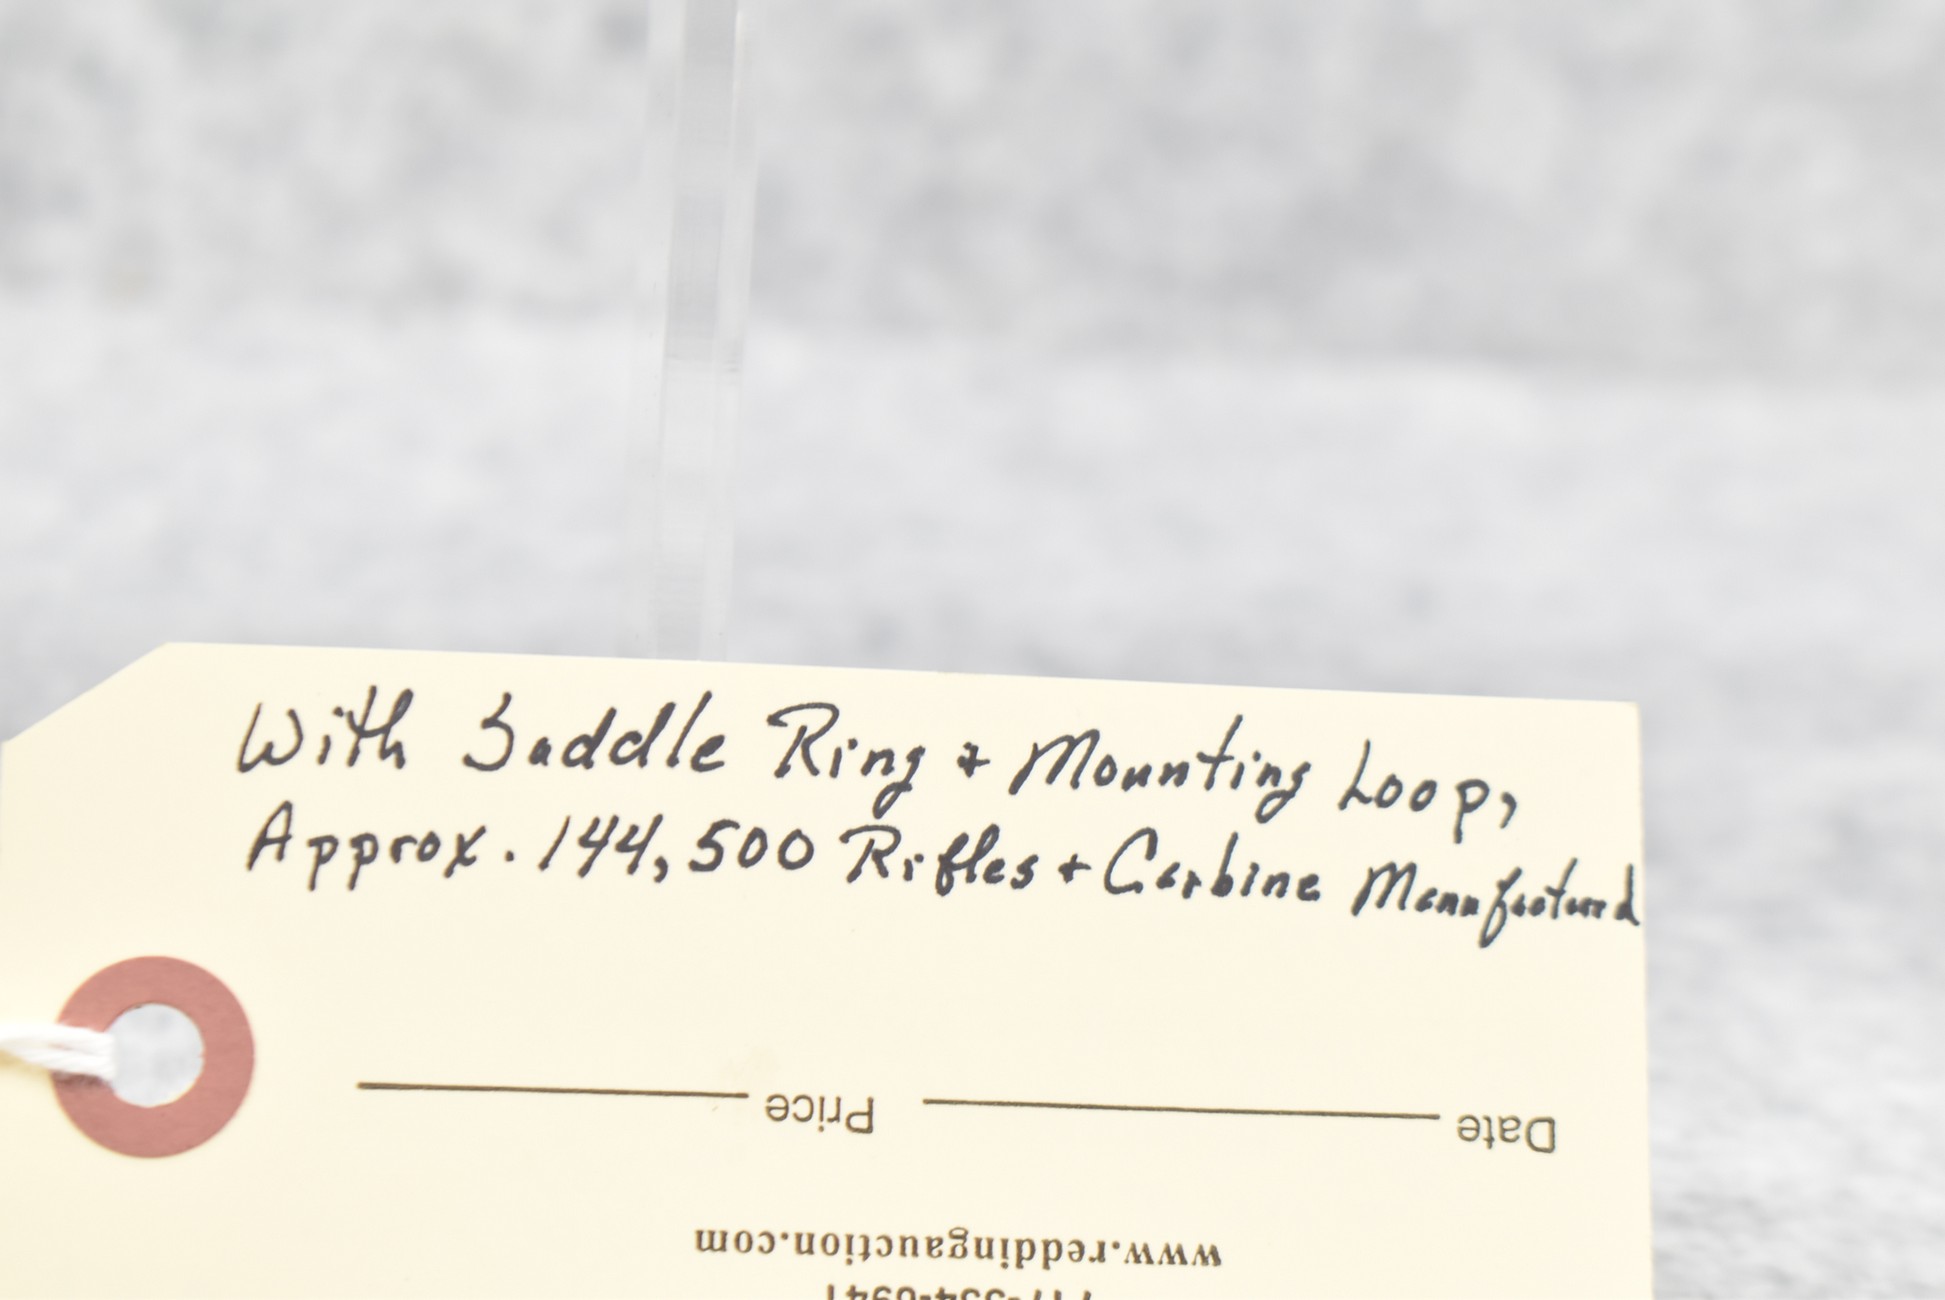 With Saddle Ring + Mounting Loop,
Approx. 144,500 Rifles + Carbine Manufactured
Price
Date
www.reddingauction.com